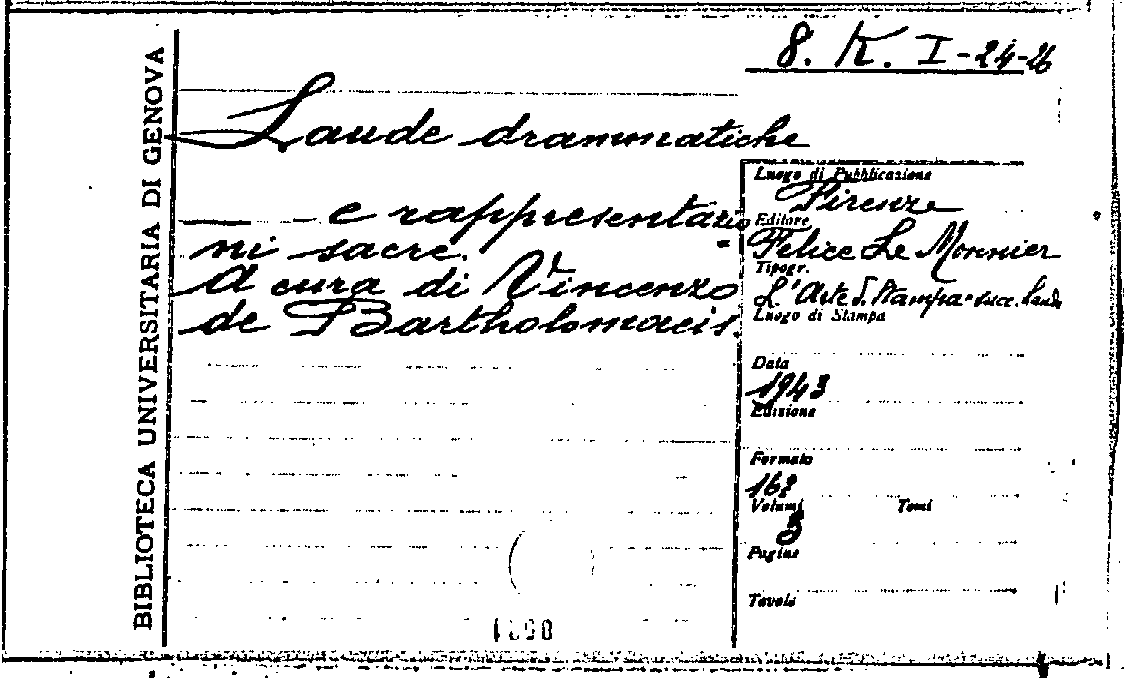 8. K. I-24-26
BIBLIOTECA UNIVERSITARIA DI GENOVA
Laude drammatiche
— — e rappresentazio
ni sacre.
A cura di Vincenzo
de Bartholomaeis.
Luogo di Pubblicazione
Firenze
Editore
Felice Le Monnier
Tipogr.
L'Arte d. Stampa succ.
Luogo di Stampa
Data
1943
Edizione
Formato
16º
Volumi Tomi
3
Pagine
Tavole